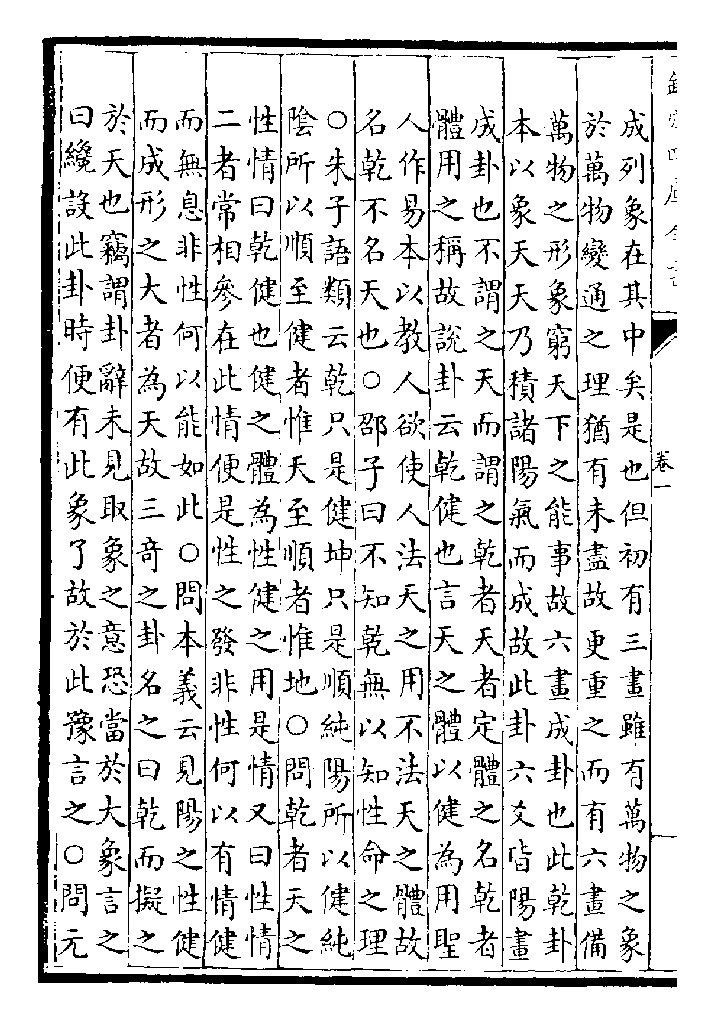 成列象在其中矣是也但初有三畫雖有萬物之象
於萬物變通之理猶有未盡故更重之而有六畫備
萬物之形象窮天下之能事故六畫成卦也此乾卦
本以象天天乃積諸陽氣而成故此卦六爻皆陽畫
成卦也不謂之天而謂之乾者天者定體之名乾者
體用之稱故說卦云乾健也言天之體以健為用聖
人作易本以教人欲使人法天之用不法天之體故
名乾不名天也○邵子曰不知乾無以知性命之理
○朱子語類云乾只是健坤只是順純陽所以健純
陰所以順至健者惟天至順者惟地○問乾者天之
性情曰乾健也健之體為性健之用是情又曰性情
二者常相參在此情便是性之發非性何以有情健
而無息非性何以能如此○問本義云見陽之性健
而成形之大者為天故三奇之卦名之曰乾而擬之
於天也竊謂卦辭未見取象之意恐當於大象言之
曰纔設此卦時便有此象了故於此豫言之○問元
卷一